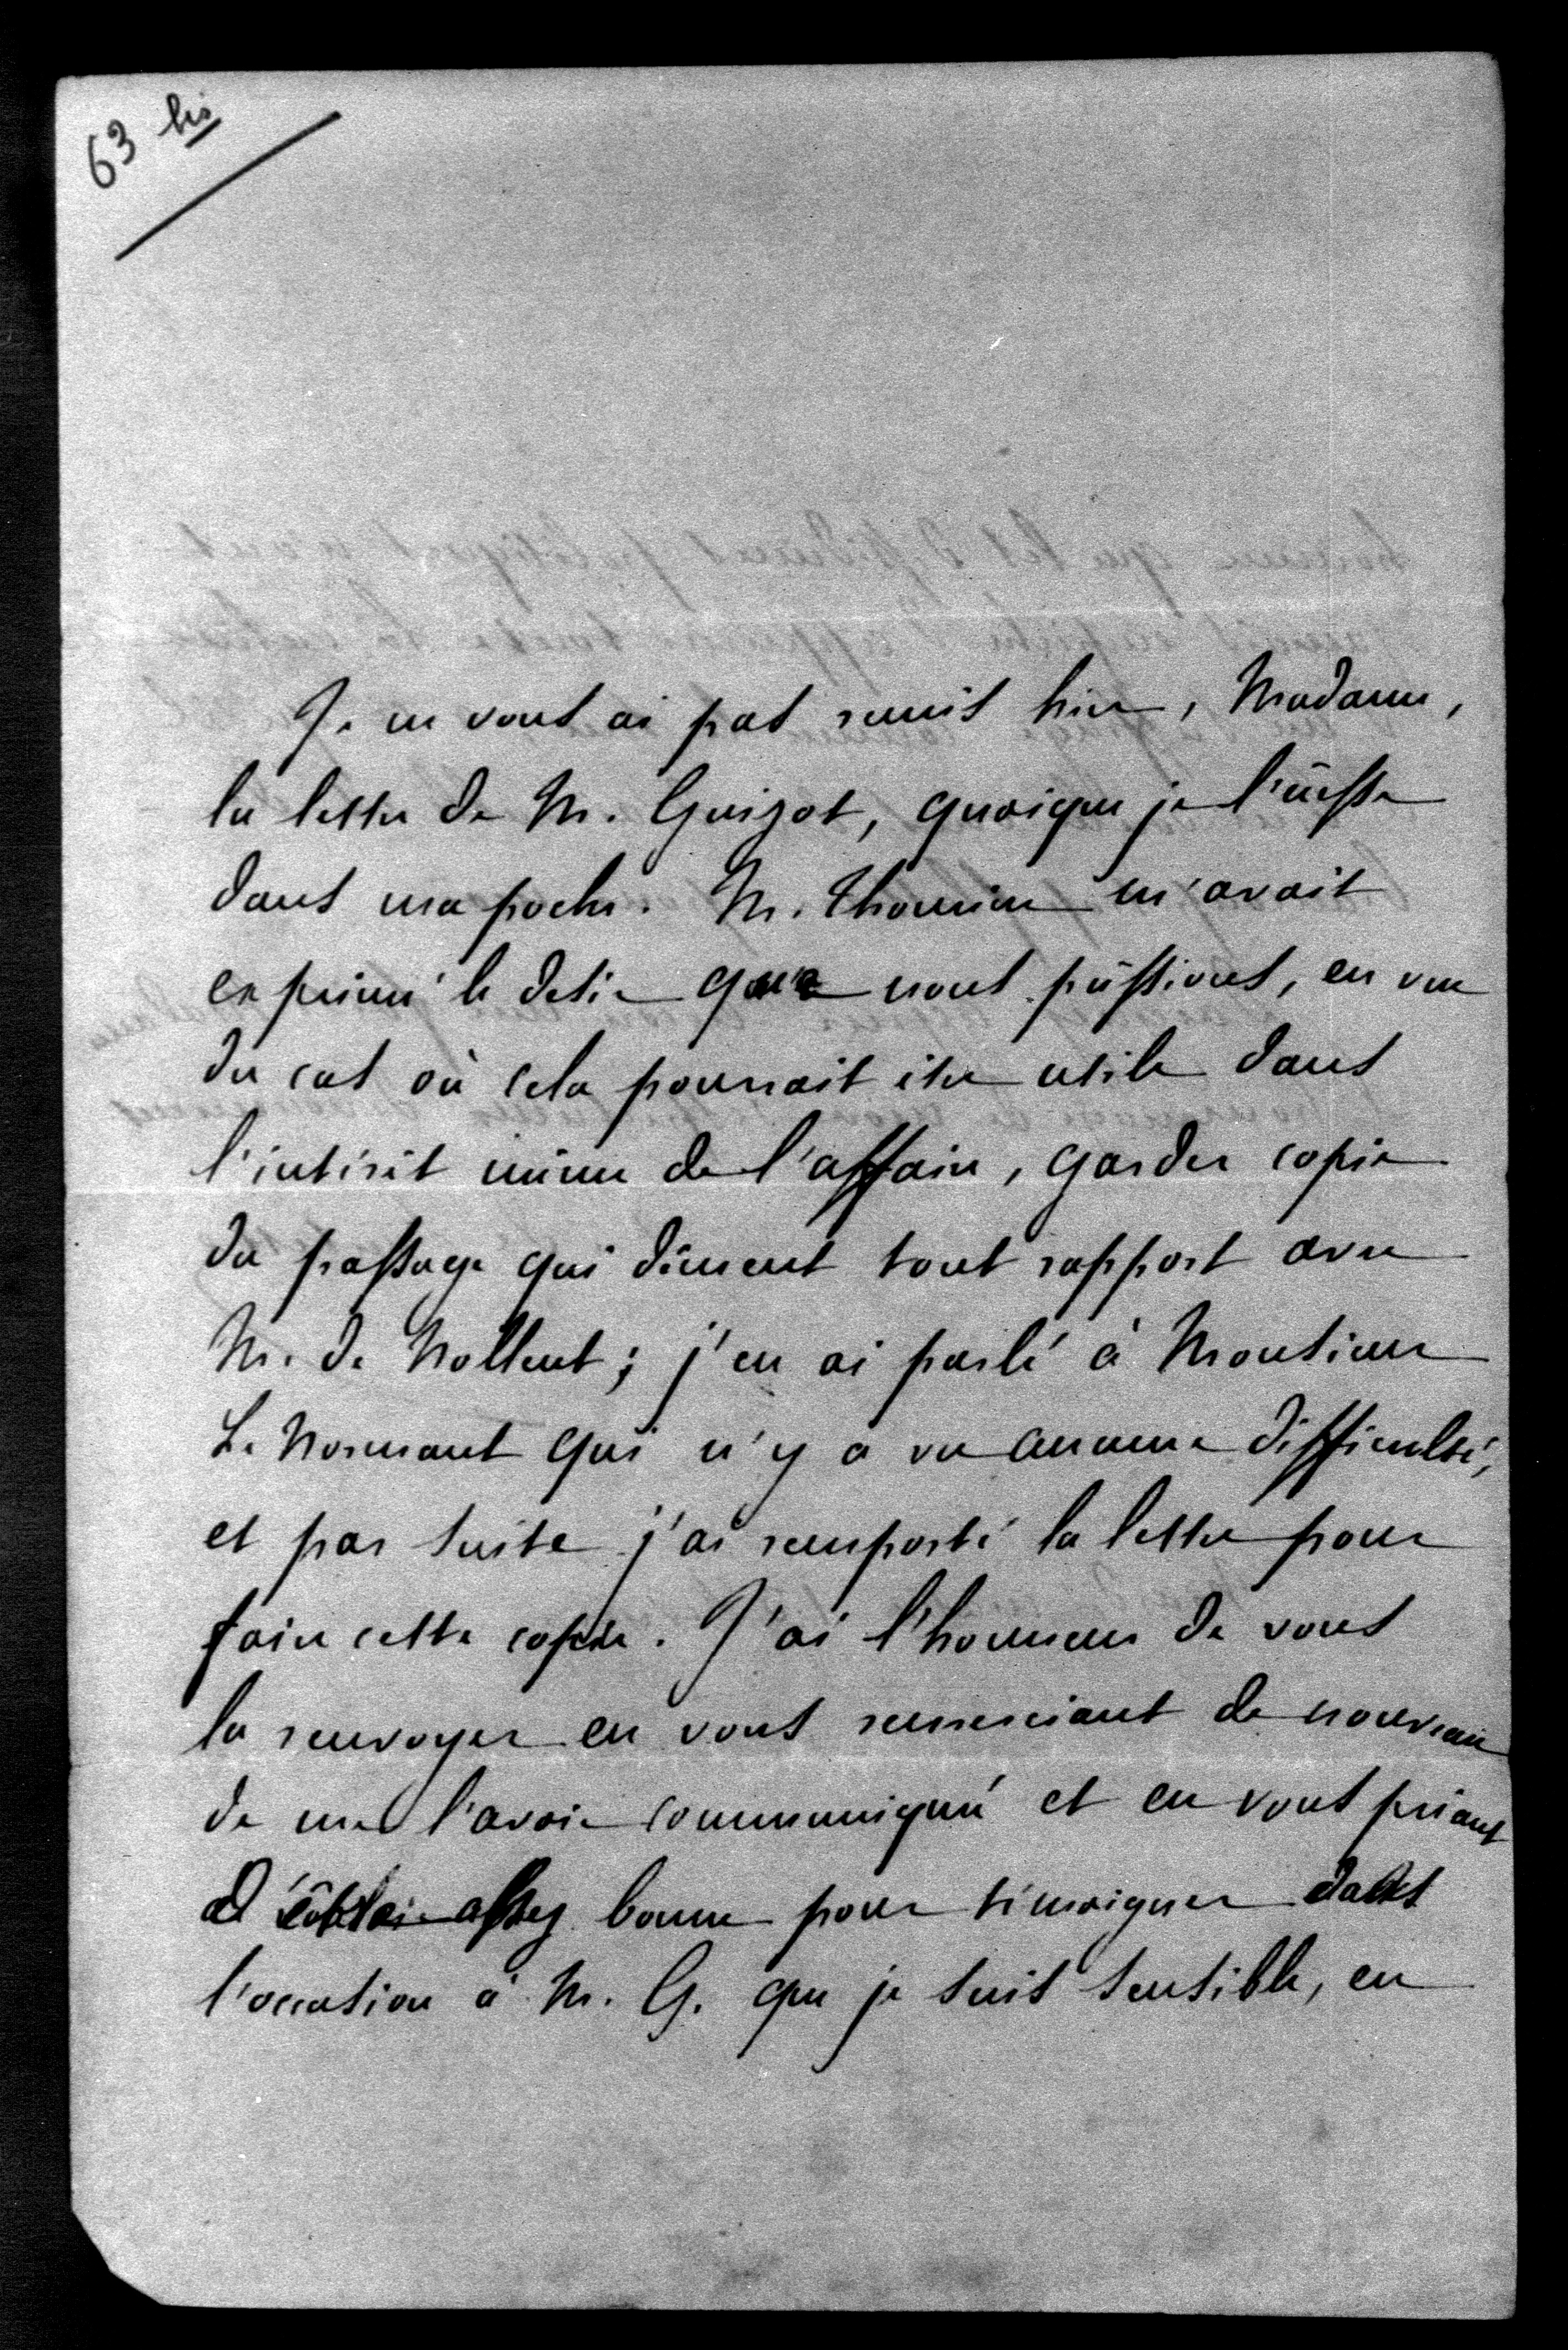 63 bis
Je ne vous ai pas remis hier, Madame,
la lettre de M. Guizot, quoique je l'eûsse
dans ma poche. M. Thomine m'avait
exprimé le desir que nous pûssions, en vue
du cas où cela pourrait être utile dans
l'intérêt même de l'affaire, garder copie
du passage qui dément tout rapport avec
M. de Nollent ; j'en ai parlé à Monsieur
Le Normant qui n'y a vu aucune difficulté,
et par suite j'ai remporté la lettre pour
faire cette copie. J'ai l'honneur de vous
la renvoyer en vous remerciant de nouveau
de me l'avoir communiqué et en vous priant
d' assez bonne pour témoigner dans
l'occasion à M. G. que je suis sensible, en